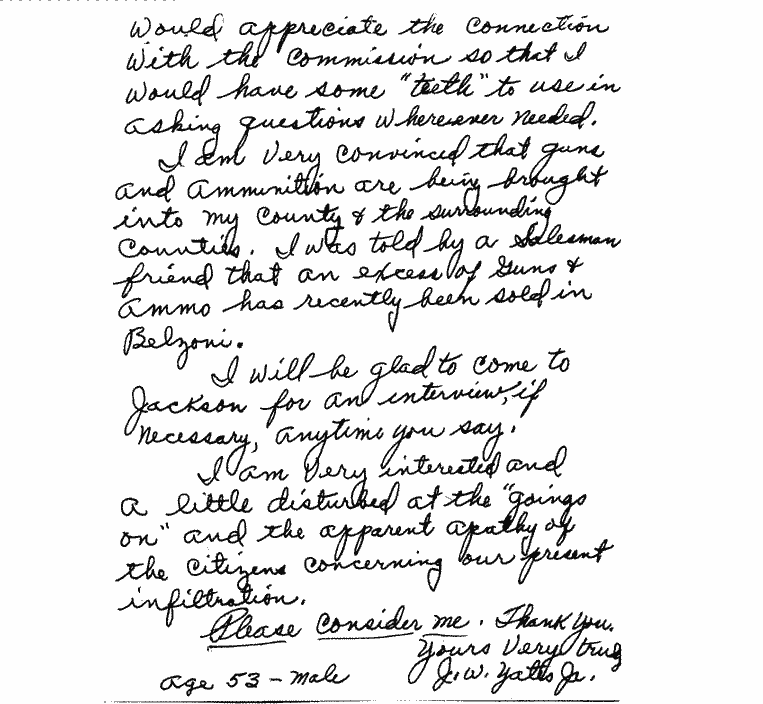 Would appreciate the connection
With the Commission so that I
would have some "teeth" to use in
asking questions wherever needed.
I am very convinced that guns
and ammunition are being brought
into my County & the surrounding
Counties. I was told by a Salesman
friend that an excess of Guns &
Ammo has recently been sold in
Belzoni.
I will be glad to come to
Jackson for an interview, if
necessary, anytime you say.
I am very interested and
a little disturbed at the "goings
on" and the apparent apathy of
the citizens concerning our present
infiltration.
Please Consider me. Thank you.
Yours Very truly
J. W. Yates Jr.
age 53 - Male